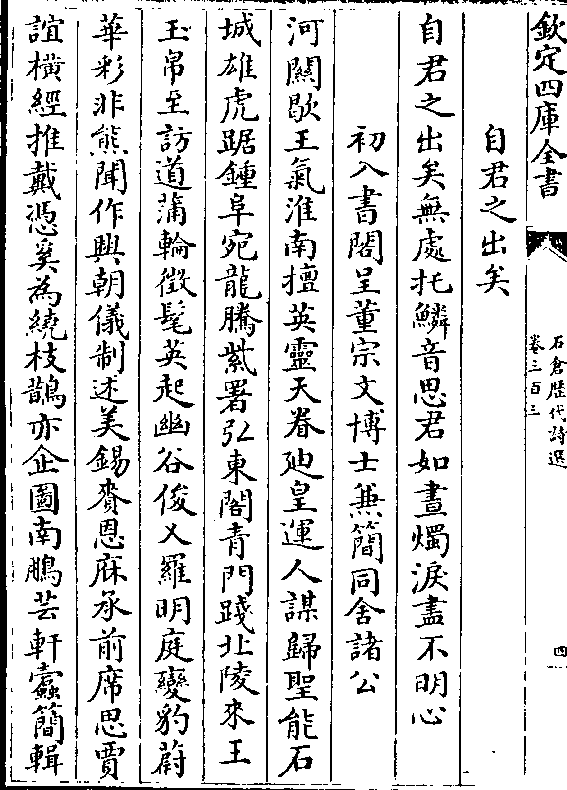 欽定四庫全書
石倉歴代詩選
卷三百三
四
自君之出矣
自君之出矣無處托鱗音思君如晝燭淚盡不明心
初入書閣呈董宗文博士兼簡同舍諸公
河關歇王氣淮南擅英靈天眷廸皇運人謀歸聖能石
城雄虎踞鍾阜宛龍騰紫署弘東閣青門踐北陵來王
玉帛至訪道蒲輪徵髦英起幽谷俊乂羅明庭變豹蔚
華彩非熊聞作興朝儀制述美錫賚恩庥承前席思賈
誼橫經推戴憑奚為繞枝鵲亦企圖南鵬芸軒蠧簡輯